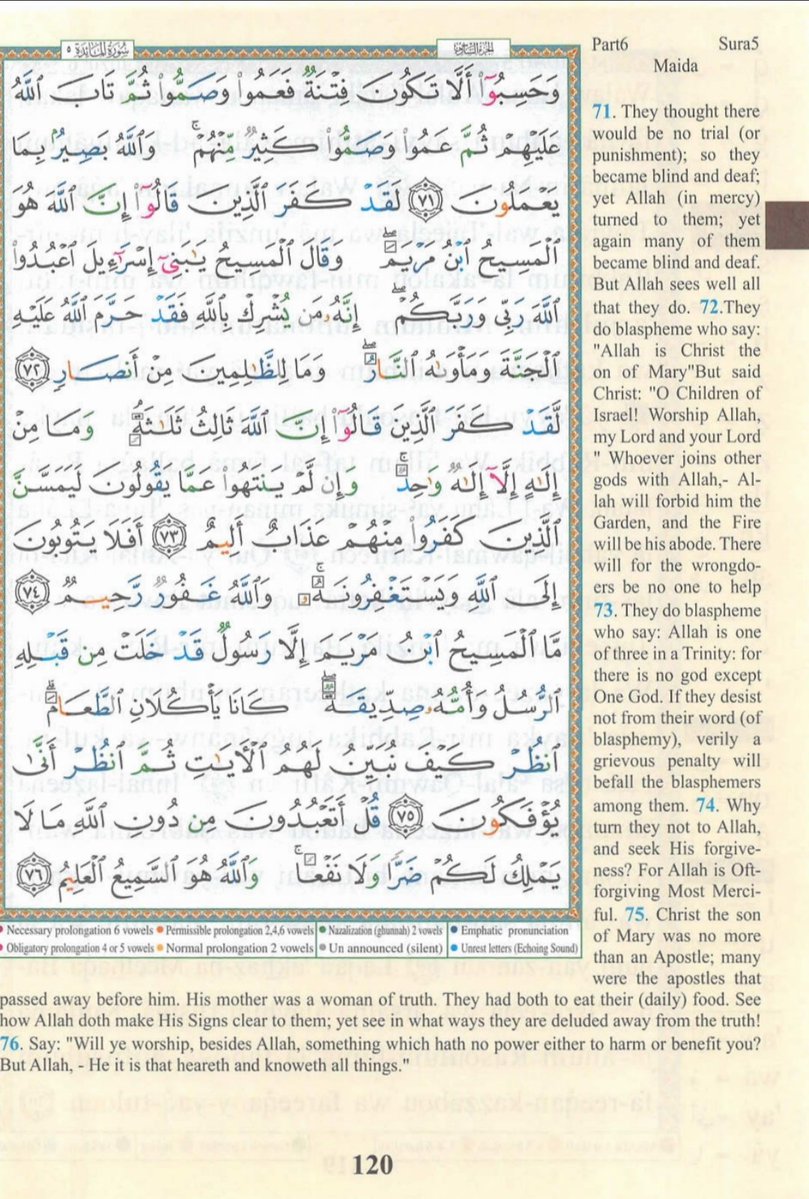 سُورَةُ المَائِدَة ٥
الجزء السادس
وَحَسِبُوٓا۟ أَلَّا تَكُونَ فِتْنَةٌ فَعَمُوا۟ وَصَمُّوا۟ ثُمَّ تَابَ ٱللَّهُ
عَلَيْهِمْ ثُمَّ عَمُوا۟ وَصَمُّوا۟ كَثِيرٌ مِّنْهُمْ ۚ وَٱللَّهُ بَصِيرٌۢ بِمَا
يَعْمَلُونَ ٧١ لَقَدْ كَفَرَ ٱلَّذِينَ قَالُوٓا۟ إِنَّ ٱللَّهَ هُوَ
ٱلْمَسِيحُ ٱبْنُ مَرْيَمَ ۖ وَقَالَ ٱلْمَسِيحُ يَٰبَنِىٓ إِسْرَٰٓءِيلَ ٱعْبُدُوا۟
ٱللَّهَ رَبِّى وَرَبَّكُمْ ۖ إِنَّهُۥ مَن يُشْرِكْ بِٱللَّهِ فَقَدْ حَرَّمَ ٱللَّهُ عَلَيْهِ
ٱلْجَنَّةَ وَمَأْوَىٰهُ ٱلنَّارُ ۖ وَمَا لِلظَّٰلِمِينَ مِنْ أَنصَارٍ ٧٢
لَّقَدْ كَفَرَ ٱلَّذِينَ قَالُوٓا۟ إِنَّ ٱللَّهَ ثَالِثُ ثَلَٰثَةٍ ۘ وَمَا مِنْ
إِلَٰهٍ إِلَّآ إِلَٰهٌ وَٰحِدٌ ۚ وَإِن لَّمْ يَنتَهُوا۟ عَمَّا يَقُولُونَ لَيَمَسَّنَّ
ٱلَّذِينَ كَفَرُوا۟ مِنْهُمْ عَذَابٌ أَلِيمٌ ٧٣ أَفَلَا يَتُوبُونَ
إِلَى ٱللَّهِ وَيَسْتَغْفِرُونَهُۥ ۚ وَٱللَّهُ غَفُورٌ رَّحِيمٌ ٧٤
مَّا ٱلْمَسِيحُ ٱبْنُ مَرْيَمَ إِلَّا رَسُولٌ قَدْ خَلَتْ مِن قَبْلِهِ
ٱلرُّسُلُ وَأُمُّهُۥ صِدِّيقَةٌ ۖ كَانَا يَأْكُلَانِ ٱلطَّعَامَ ۗ
ٱنظُرْ كَيْفَ نُبَيِّنُ لَهُمُ ٱلْءَايَٰتِ ثُمَّ ٱنظُرْ أَنَّىٰ
يُؤْفَكُونَ ٧٥ قُلْ أَتَعْبُدُونَ مِن دُونِ ٱللَّهِ مَا لَا
يَمْلِكُ لَكُمْ ضَرًّا وَلَا نَفْعًا ۚ وَٱللَّهُ هُوَ ٱلسَّمِيعُ ٱلْعَلِيمُ ٧٦
Necessary prolongation 6 vowels Permissible prolongation 2,4,6 vowels Nazalization (ghunnah) 2 vowels Emphatic pronunciation
Obligatory prolongation 4 or 5 vowels Normal prolongation 2 vowels Un announced (silent) Unrest letters (Echoing Sound)
Part6 Sura5
Maida
71. They thought there
would be no trial (or
punishment); so they
became blind and deaf;
yet Allah (in mercy)
turned to them; yet
again many of them
became blind and deaf.
But Allah sees well all
that they do. 72.They
do blaspheme who say:
"Allah is Christ the
on of Mary"But said
Christ: "O Children of
Israel! Worship Allah,
my Lord and your Lord
" Whoever joins other
gods with Allah,- Al-
lah will forbid him the
Garden, and the Fire
will be his abode. There
will for the wrongdo-
ers be no one to help
73. They do blaspheme
who say: Allah is one
of three in a Trinity: for
there is no god except
One God. If they desist
not from their word (of
blasphemy), verily a
grievous penalty will
befall the blasphemers
among them. 74. Why
turn they not to Allah,
and seek His forgive-
ness? For Allah is Oft-
forgiving Most Merci-
ful. 75. Christ the son
of Mary was no more
than an Apostle; many
were the apostles that
passed away before him. His mother was a woman of truth. They had both to eat their (daily) food. See
how Allah doth make His Signs clear to them; yet see in what ways they are deluded away from the truth!
76. Say: "Will ye worship, besides Allah, something which hath no power either to harm or benefit you?
But Allah, - He it is that heareth and knoweth all things."
120